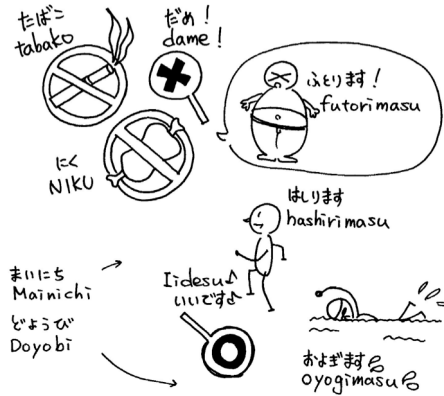 たばこ
tabako
だめ！
dame！
ふとります！
futorimasu
にく
NIKU
はしります
hashirimasu
まいにち
Mainichi
どようび
Doyobi
Iidesu♪
いいです♪
およぎます
oyogimasu